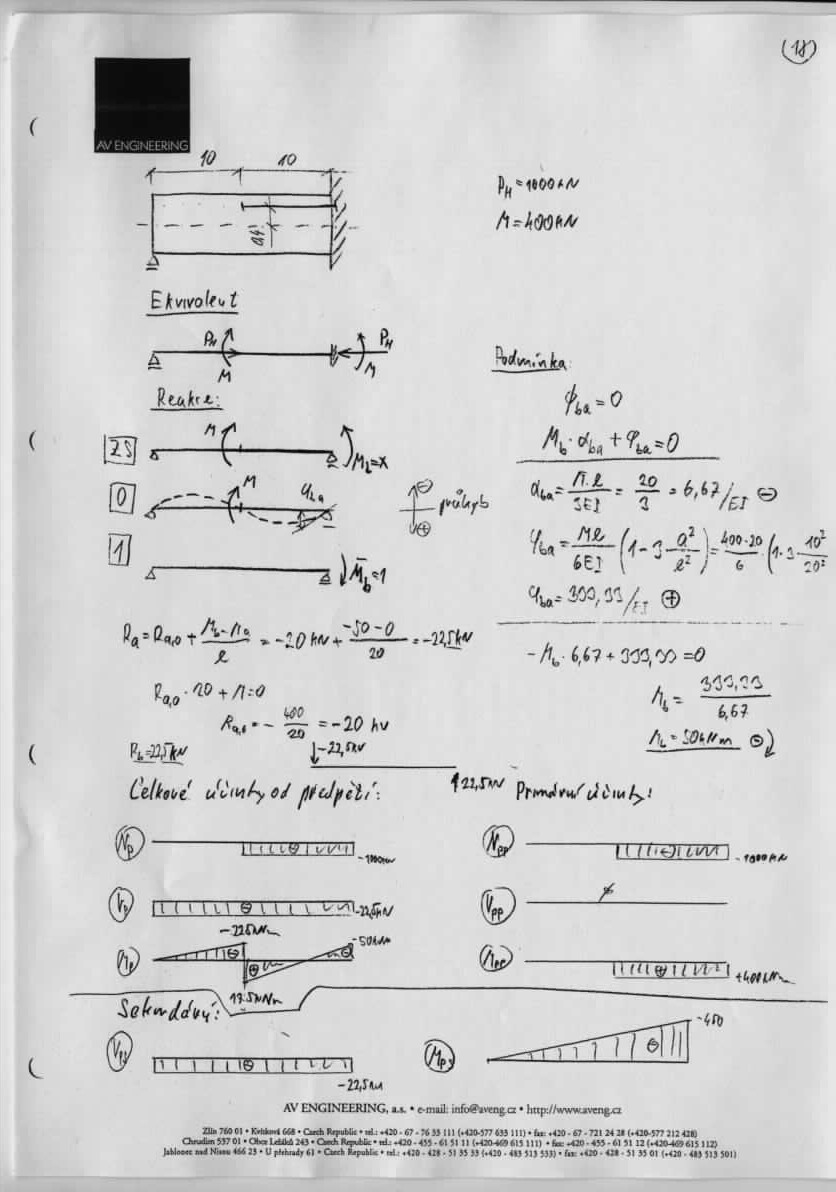 (18)
AV ENGINEERING
10 10
P_H = 1000 kN
M = 400 kN
Ekvivalent
P_H P_H
M M
Podmínka:
Reakce:
ϕ_ba = 0
M_b · α_ba + φ_ba = 0
ZS M M_b = x
0 M φ_ba
průhyb
⊖
⊕
1 M̄_b = 1
α_ba = M·l/3EI = 20/3 = 6,67/EI ⊖
φ_ba = Ml/6EI (1 - 3 · a²/l²) = 400·20/6 · (1 - 3 · 10²/20²
φ_ba = 333,33/EI ⊕
R_a = R_a,0 + M_b - M_a/l = -20 kN + -50 - 0/20 = -22,5 kN
- M_b · 6,67 + 333,33 = 0
R_a,0 · 20 + M = 0
M_b = 333,33/6,67
R_a,0 = - 400/20 = -20 kN
R_b = 22,5 kN
-22,5 kN
M_b = 50 kNm ⊖
22,5 kN
Celkové účinky od předpětí:
Primární účinky:
N_p ⊖ -1000 kN
N_pp ⊖ -1000 kN
V_p ⊖ -22,5 kN
V_pp
-225 kNm
-50 kNm
M_p ⊖ ⊕ ⊖
M_pp ⊕ +400 kNm
Sekundární:
V_ps ⊖
-22,5 kN
M_ps ⊖ -450
AV ENGINEERING, a.s. • e-mail: info@aveng.cz • http://www.aveng.cz
Zlín 760 01 • Kvítková 668 • Czech Republic • tel.: +420 - 67 - 76 33 111 (+420-577 633 111) • fax: +420 - 67 - 721 24 28 (+420-577 212 428)
Chrudim 537 01 • Obce Ležáků 243 • Czech Republic • tel.: +420 - 455 - 61 51 11 (+420-469 615 111) • fax: +420 - 455 - 61 51 12 (+420-469 615 112)
Jablonec nad Nisou 466 23 • U přehrady 61 • Czech Republic • tel.: +420 - 428 - 51 35 33 (+420 - 483 513 533) • fax: +420 - 428 - 51 35 01 (+420 - 483 513 501)